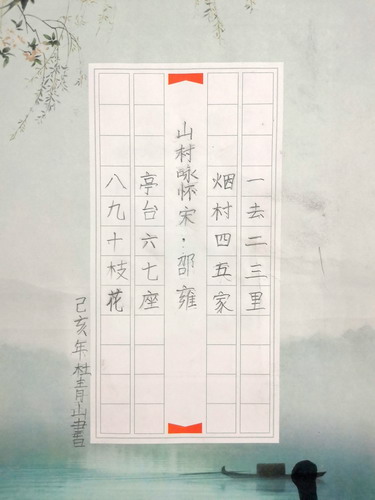 一去二三里
烟村四五家
山村咏怀宋·邵雍
亭台六七座
八九十枝花
己亥年杜青山書